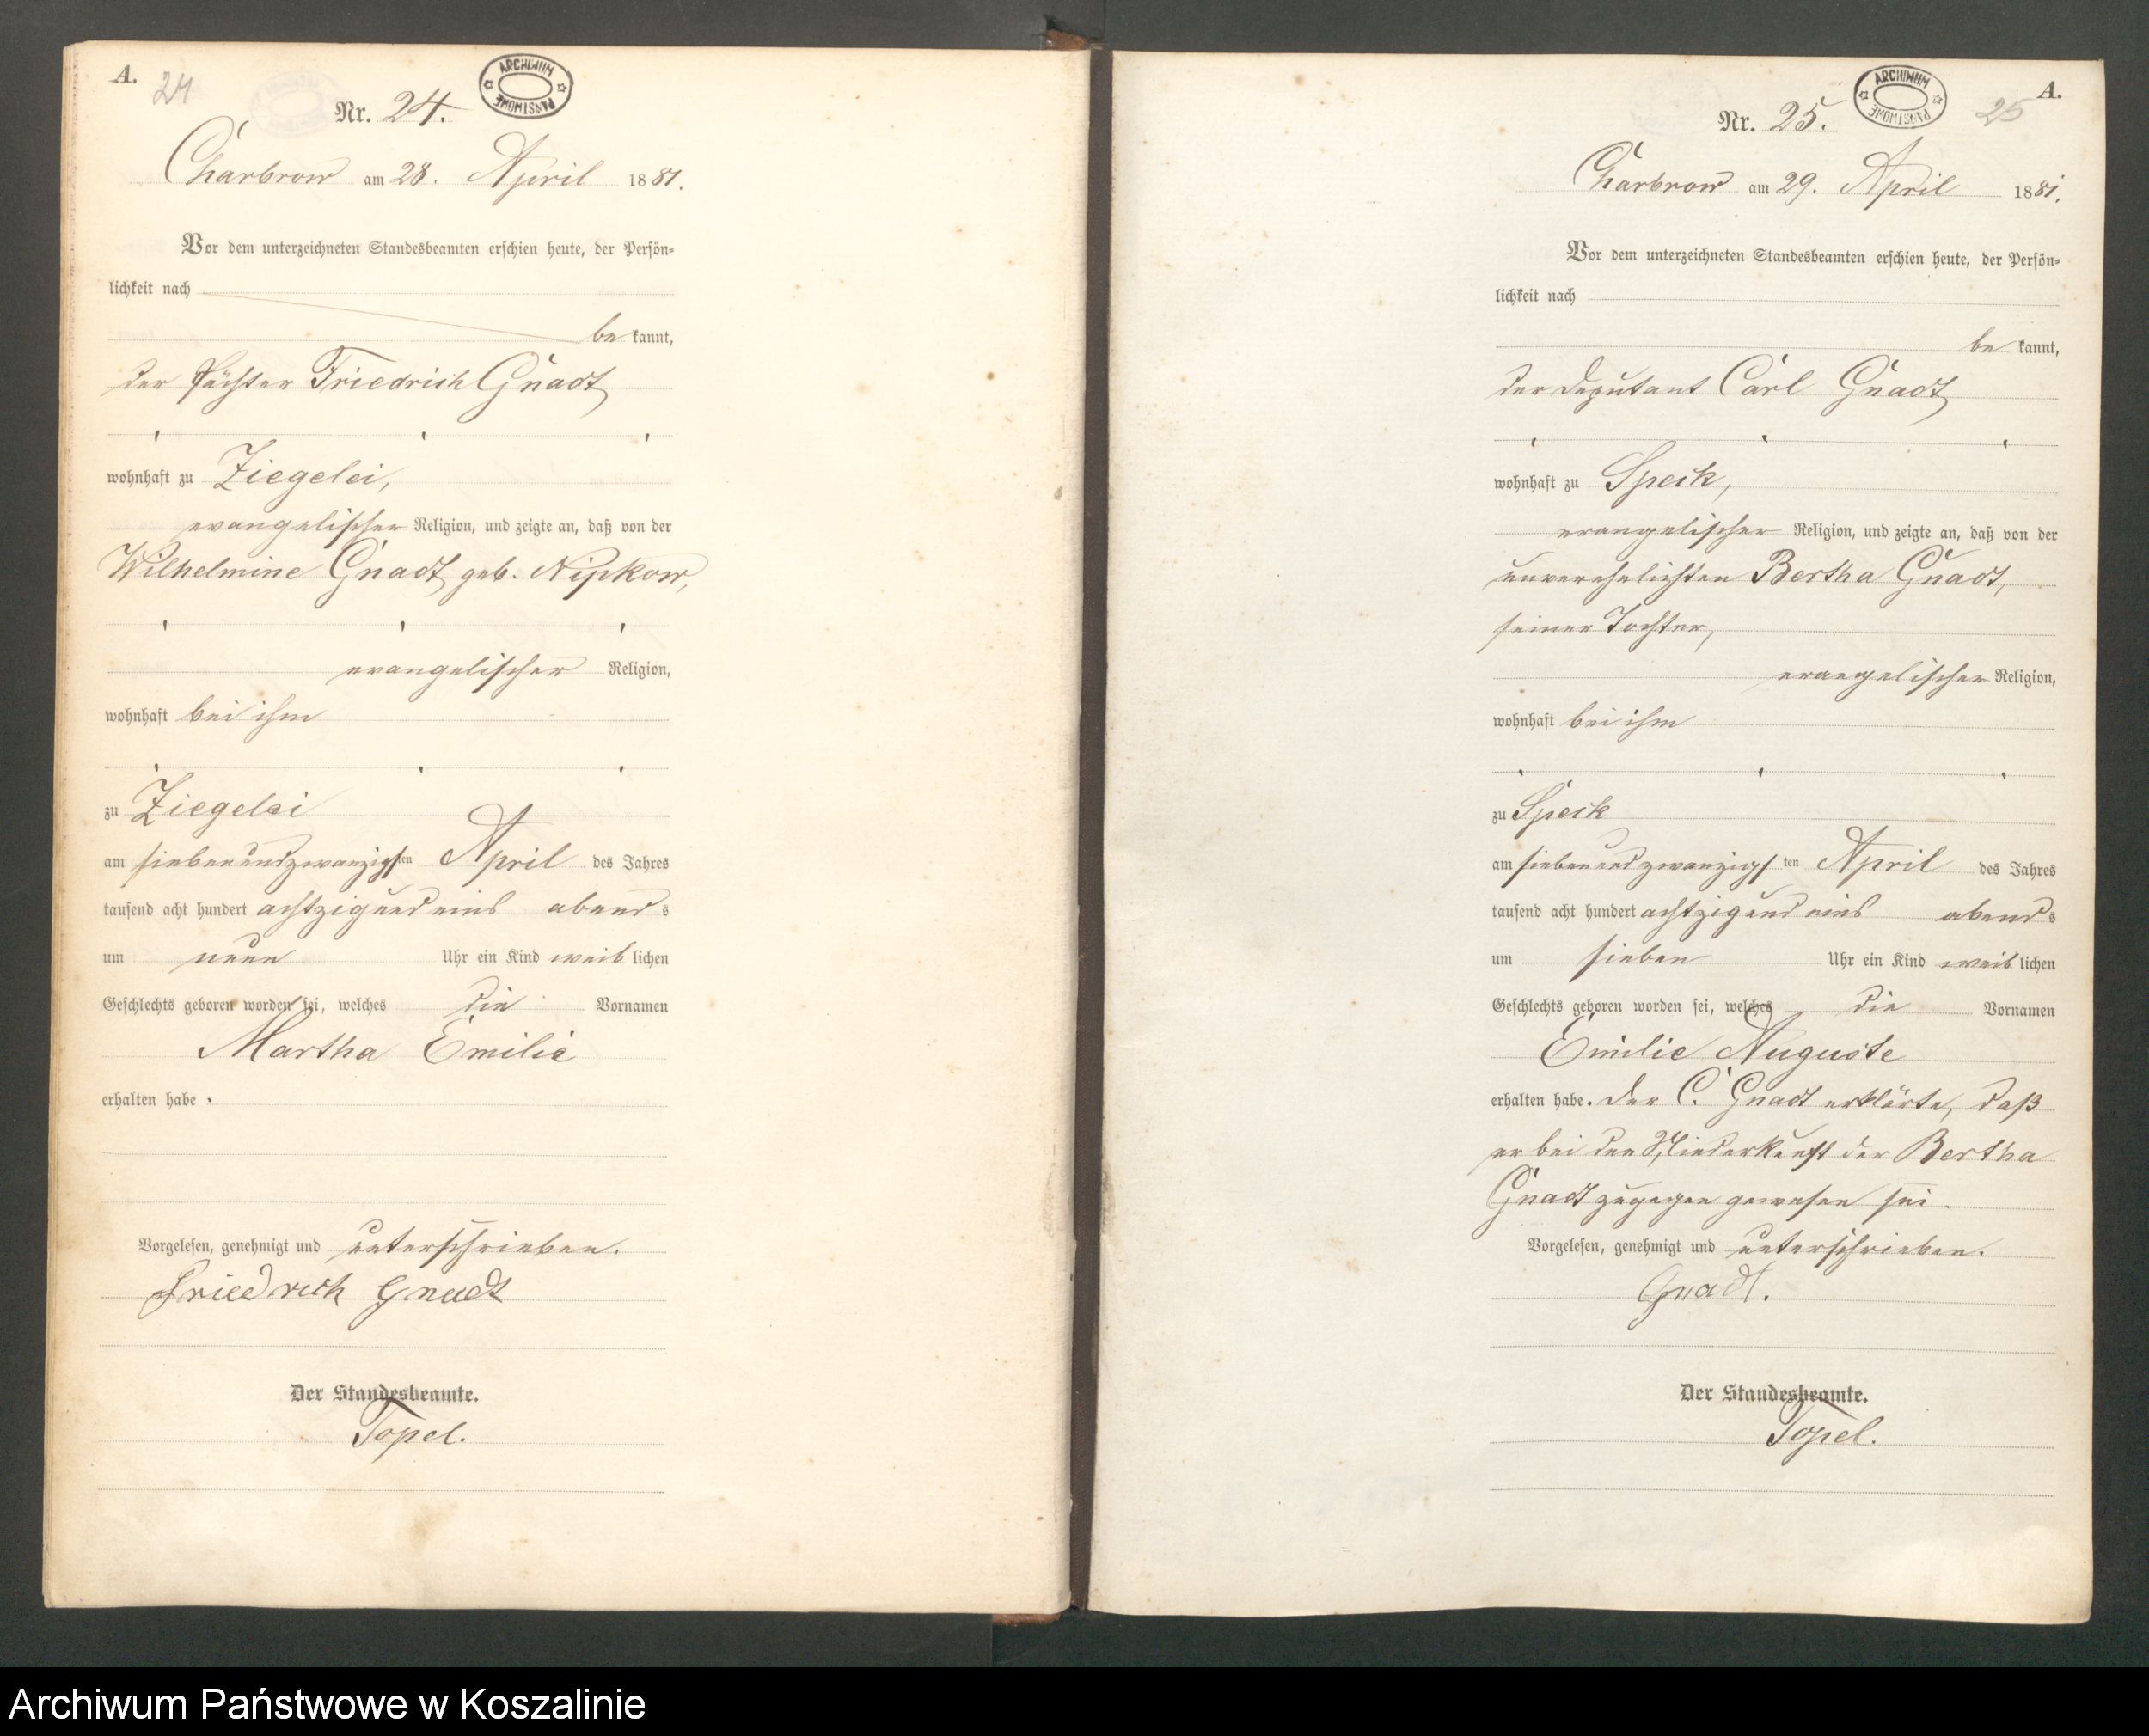 A.
24
ARCHIWUM PAŃSTWOWE
Nr. 24.
Charbrow am 28. April 1881.
Vor dem unterzeichneten Standesbeamten erschien heute, der Persön-
lichkeit nach
be kannt,
der Pächter Friedrich Gnadt
wohnhaft zu Ziegelei,
evangelischer Religion, und zeigte an, daß von der
Wilhelmine Gnadt geb. Nipkow,
evangelischer Religion,
wohnhaft bei ihm
zu Ziegelei
am siebenundzwanzigsten April des Jahres
tausend acht hundert achtzig und eins abends
um neun Uhr ein Kind weiblichen
Geschlechts geboren worden sei, welches die Vornamen
Martha Emilie
erhalten habe.
Vorgelesen, genehmigt und unterschrieben.
Friedrich Gnadt
Der Standesbeamte.
Topel.
A.
25
ARCHIWUM PAŃSTWOWE
Nr. 25.
Charbrow am 29. April 1881.
Vor dem unterzeichneten Standesbeamten erschien heute, der Persön-
lichkeit nach
be kannt,
der Deputant Carl Gnadt
wohnhaft zu Speck,
evangelischer Religion, und zeigte an, daß von der
unverehelichten Bertha Gnadt,
seiner Tochter,
evangelischer Religion,
wohnhaft bei ihm
zu Speck
am siebenundzwanzigsten April des Jahres
tausend acht hundert achtzig und eins abends
um sieben Uhr ein Kind weiblichen
Geschlechts geboren worden sei, welches die Vornamen
Emilie Auguste
erhalten habe. Der C. Gnadt erklärte, daß
er bei der Niederkunft der Bertha
Gnadt zugegen gewesen sei.
Vorgelesen, genehmigt und unterschrieben.
Gnadt.
Der Standesbeamte.
Topel.
Archiwum Państwowe w Koszalinie